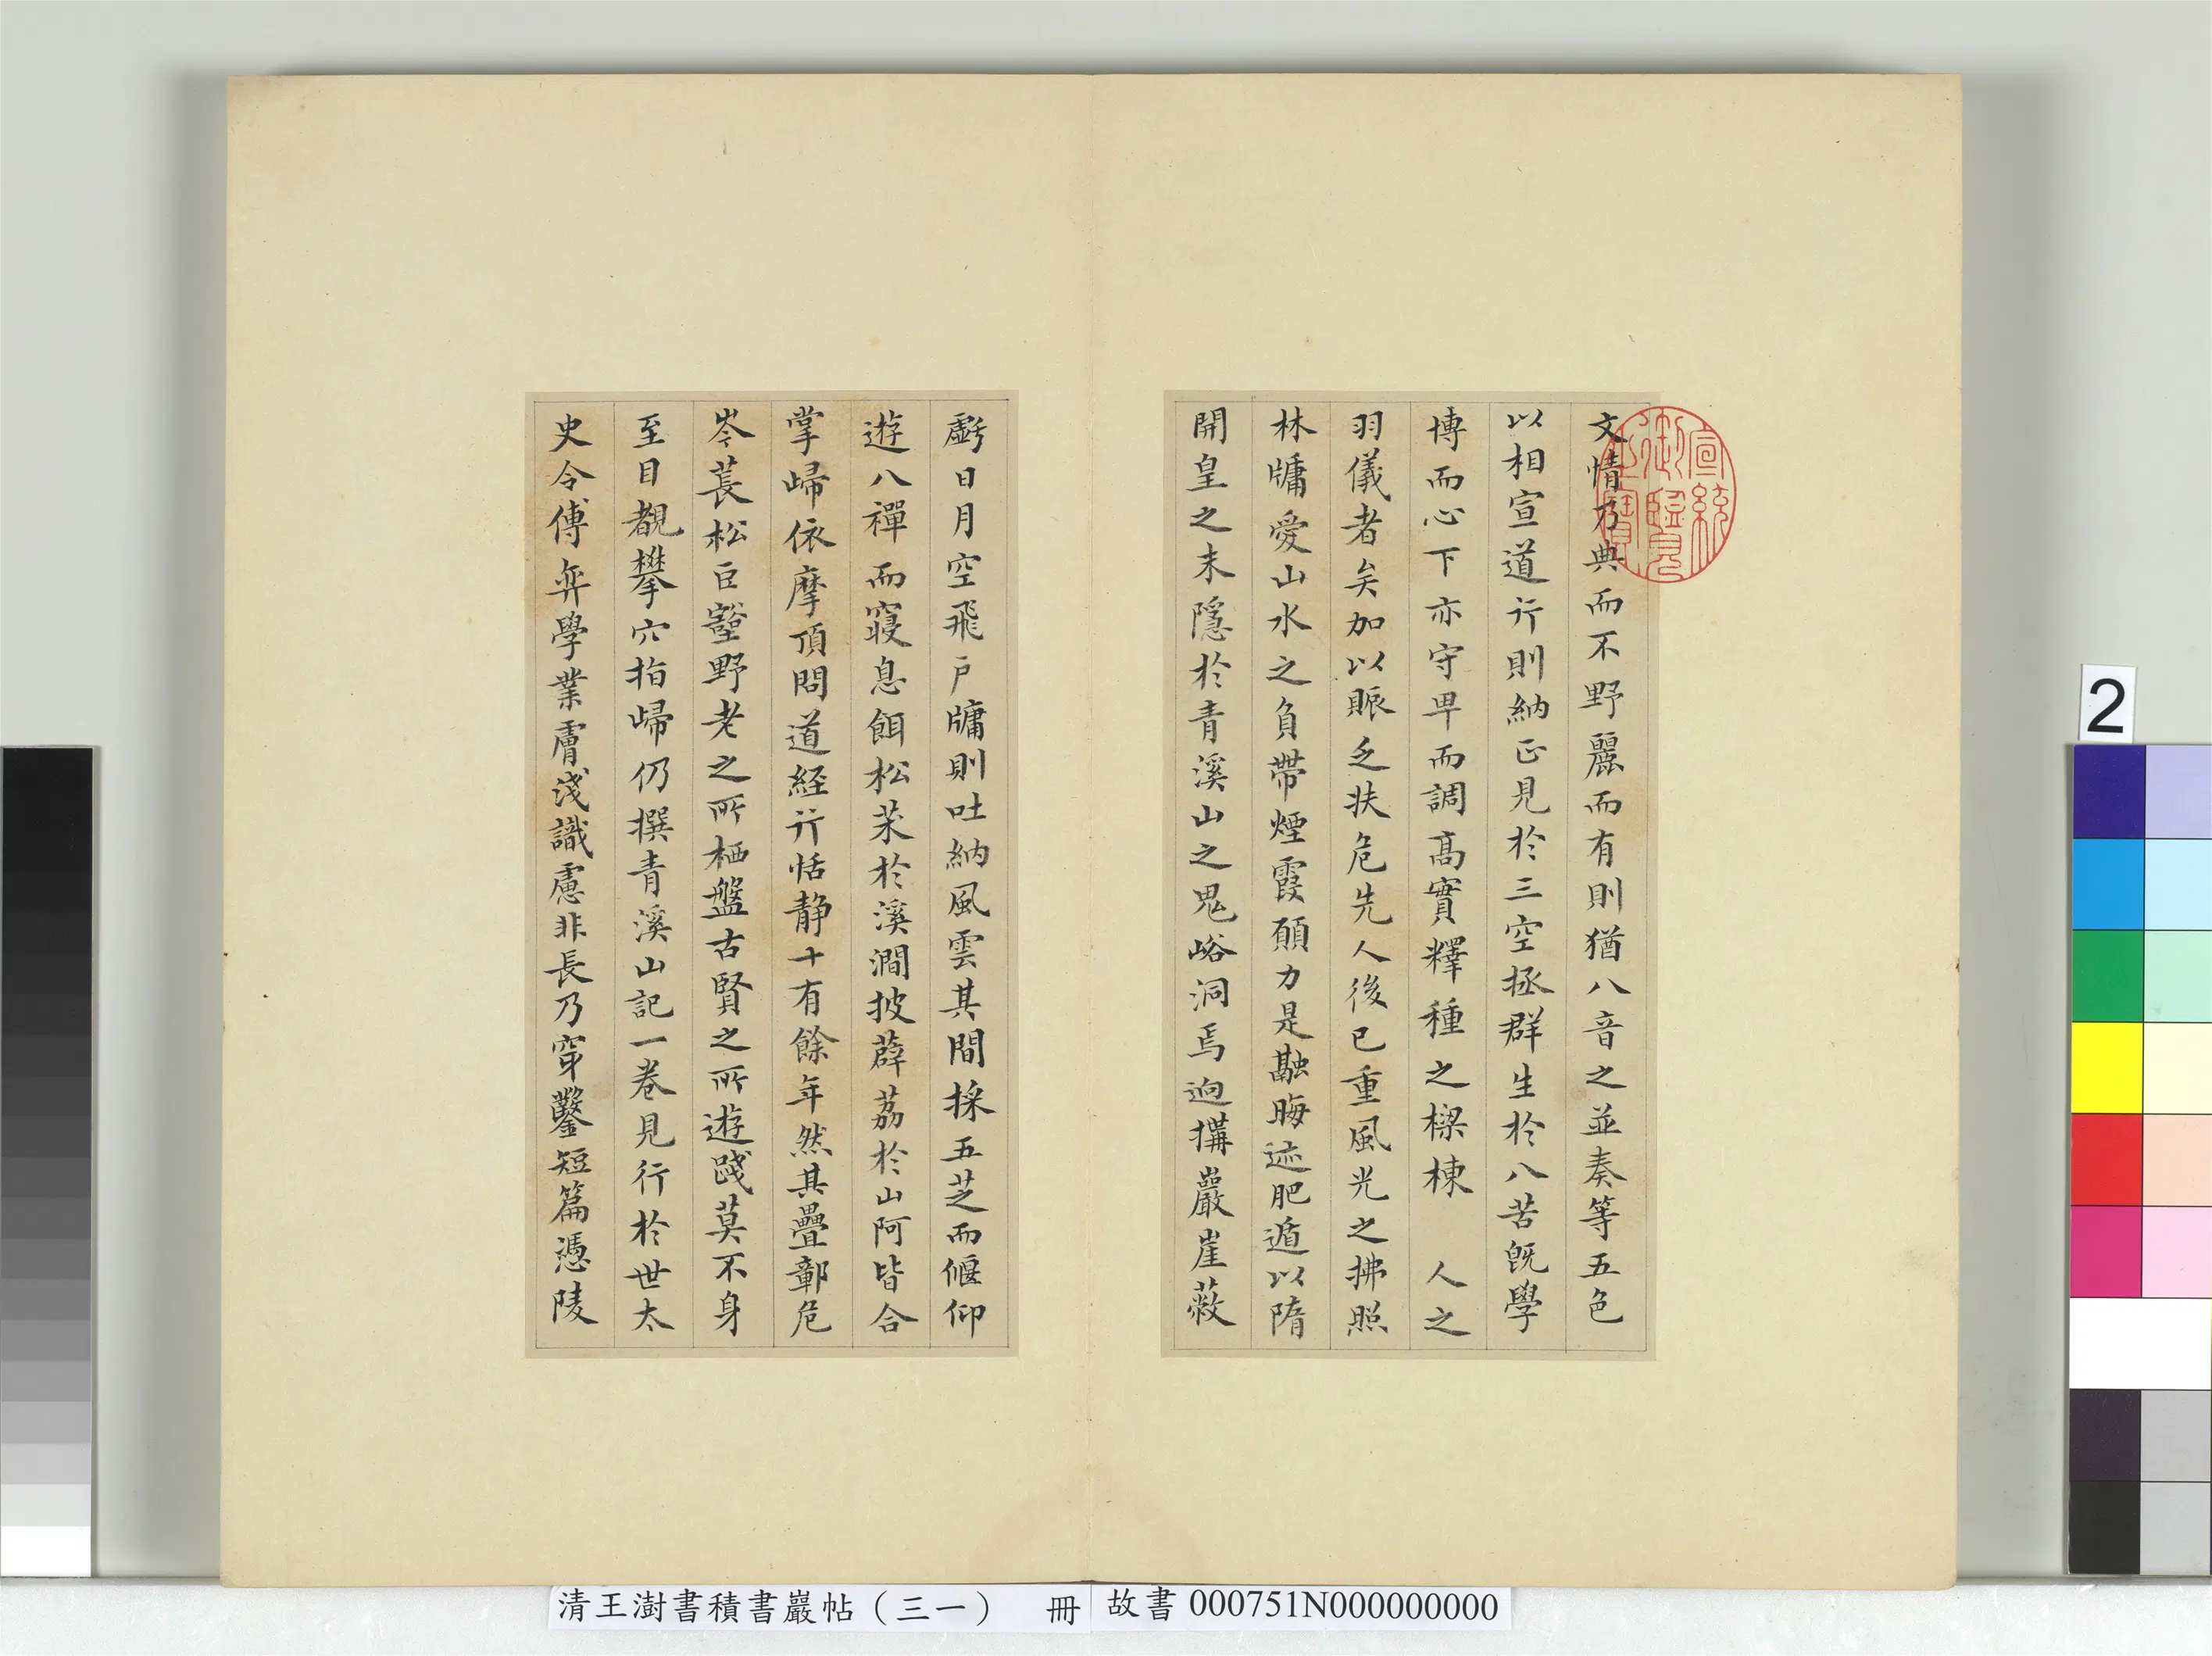 文情乃典而不野麗而有則猶八音之並奏等五色
以相宣道行則納正見於三空拯群生於八苦既學
博而心下亦守卑而調高實釋種之樑棟 人之
羽儀者矣加以賑乏扶危先人後己重風光之拂照
林牗愛山水之負帶煙霞願力是融晦迹肥遁以隋
開皇之末隱於青溪山之鬼峪洞焉逈搆巖崖蔽
虧日月空飛戶牗則吐納風雲其間採五芝而偃仰
遊八禪而寢息餌松茱於溪澗披薜荔於山阿皆合
掌歸依摩頂問道経行恬静十有餘年然其疊鄣危
岑萇松巨壑野老之所栖盤古賢之所遊踐莫不身
至目覩攀穴指歸仍撰青溪山記一卷見行於世太
史令傅弈學業膚淺識慮非長乃穿鑿短篇憑陵
宣統御覽之寶
2
清王澍書積書巖帖（三一） 冊 故書 000751N000000000